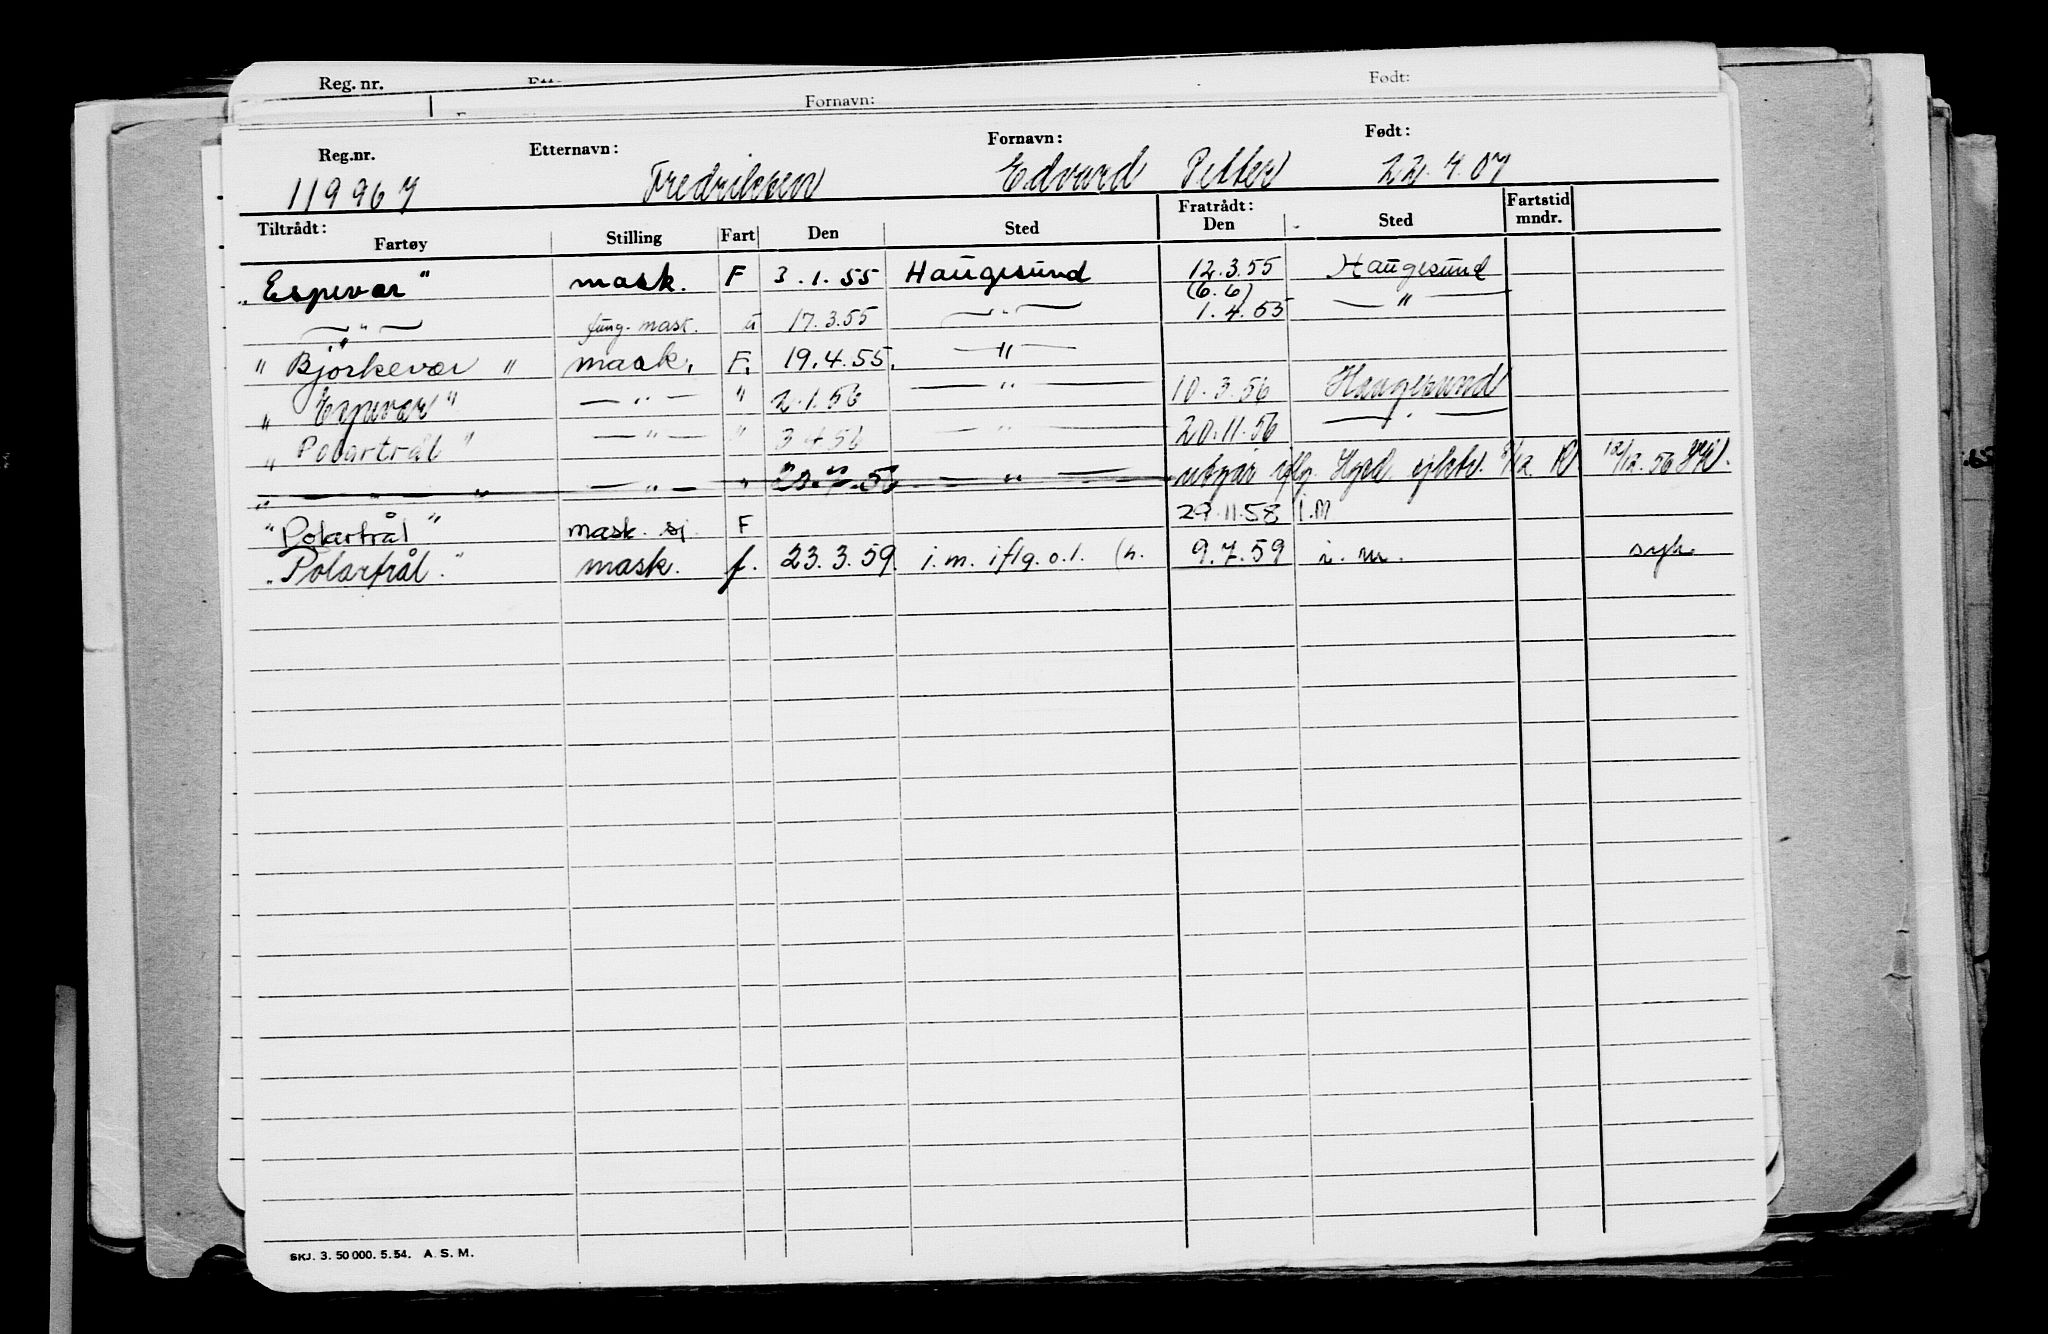 Reg. nr.
Født:
Fornavn:
Reg.nr. Etternavn: Fornavn: Født:
119967 Fredriksen Edvard Petter 22.4.07
Tiltrådt: Fratrådt: Fartstid
Fartøy Stilling Fart Den Sted Den Sted mndr.
"Espevær" mask. F 3.1.55 Haugesund 12.3.55 Haugesund
(6.6)
— " — fung. mast. u 17.3.55 — " — 1.4.55 — " —
" Bjørkevær " mask. F. 19.4.55. — " —
" Espevær " — " — " 2.1.56 — " — 10.3.56 Haugesund
" Polartrål " — " — " 3.4.56 — " — 20.11.56 — " —
" — " — " — " — " — " — utgår iflg. Hgsd. 12/12.56
"Polartrål" mask. sj. F 29.11.58 i.m
"Polartrål." mask. f. 23.3.59. i.m. iflg. o.l. (h. 9.7.59 i.m. syk
SKJ. 3. 50 000. 5. 54. A. S. M.